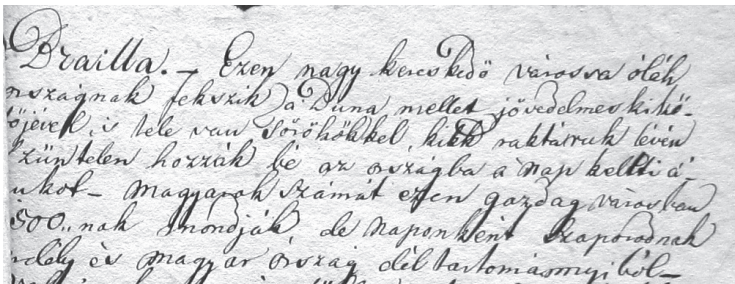 Brailla. – Ezen nagy kereskedő várossa óláh
országnak fekszik a Duna mellet jövedelmes kikö-
tőjével, is tele van törökökkel, kikk raktárruk lévén
szüntelen hozzák bé az országba a nap kelltti á-
rukot – magyarok számát ezen gazdag városban
1500.. nak mondják de naponként szaporodnak
erdély és magyar ország déltartománnyiból –